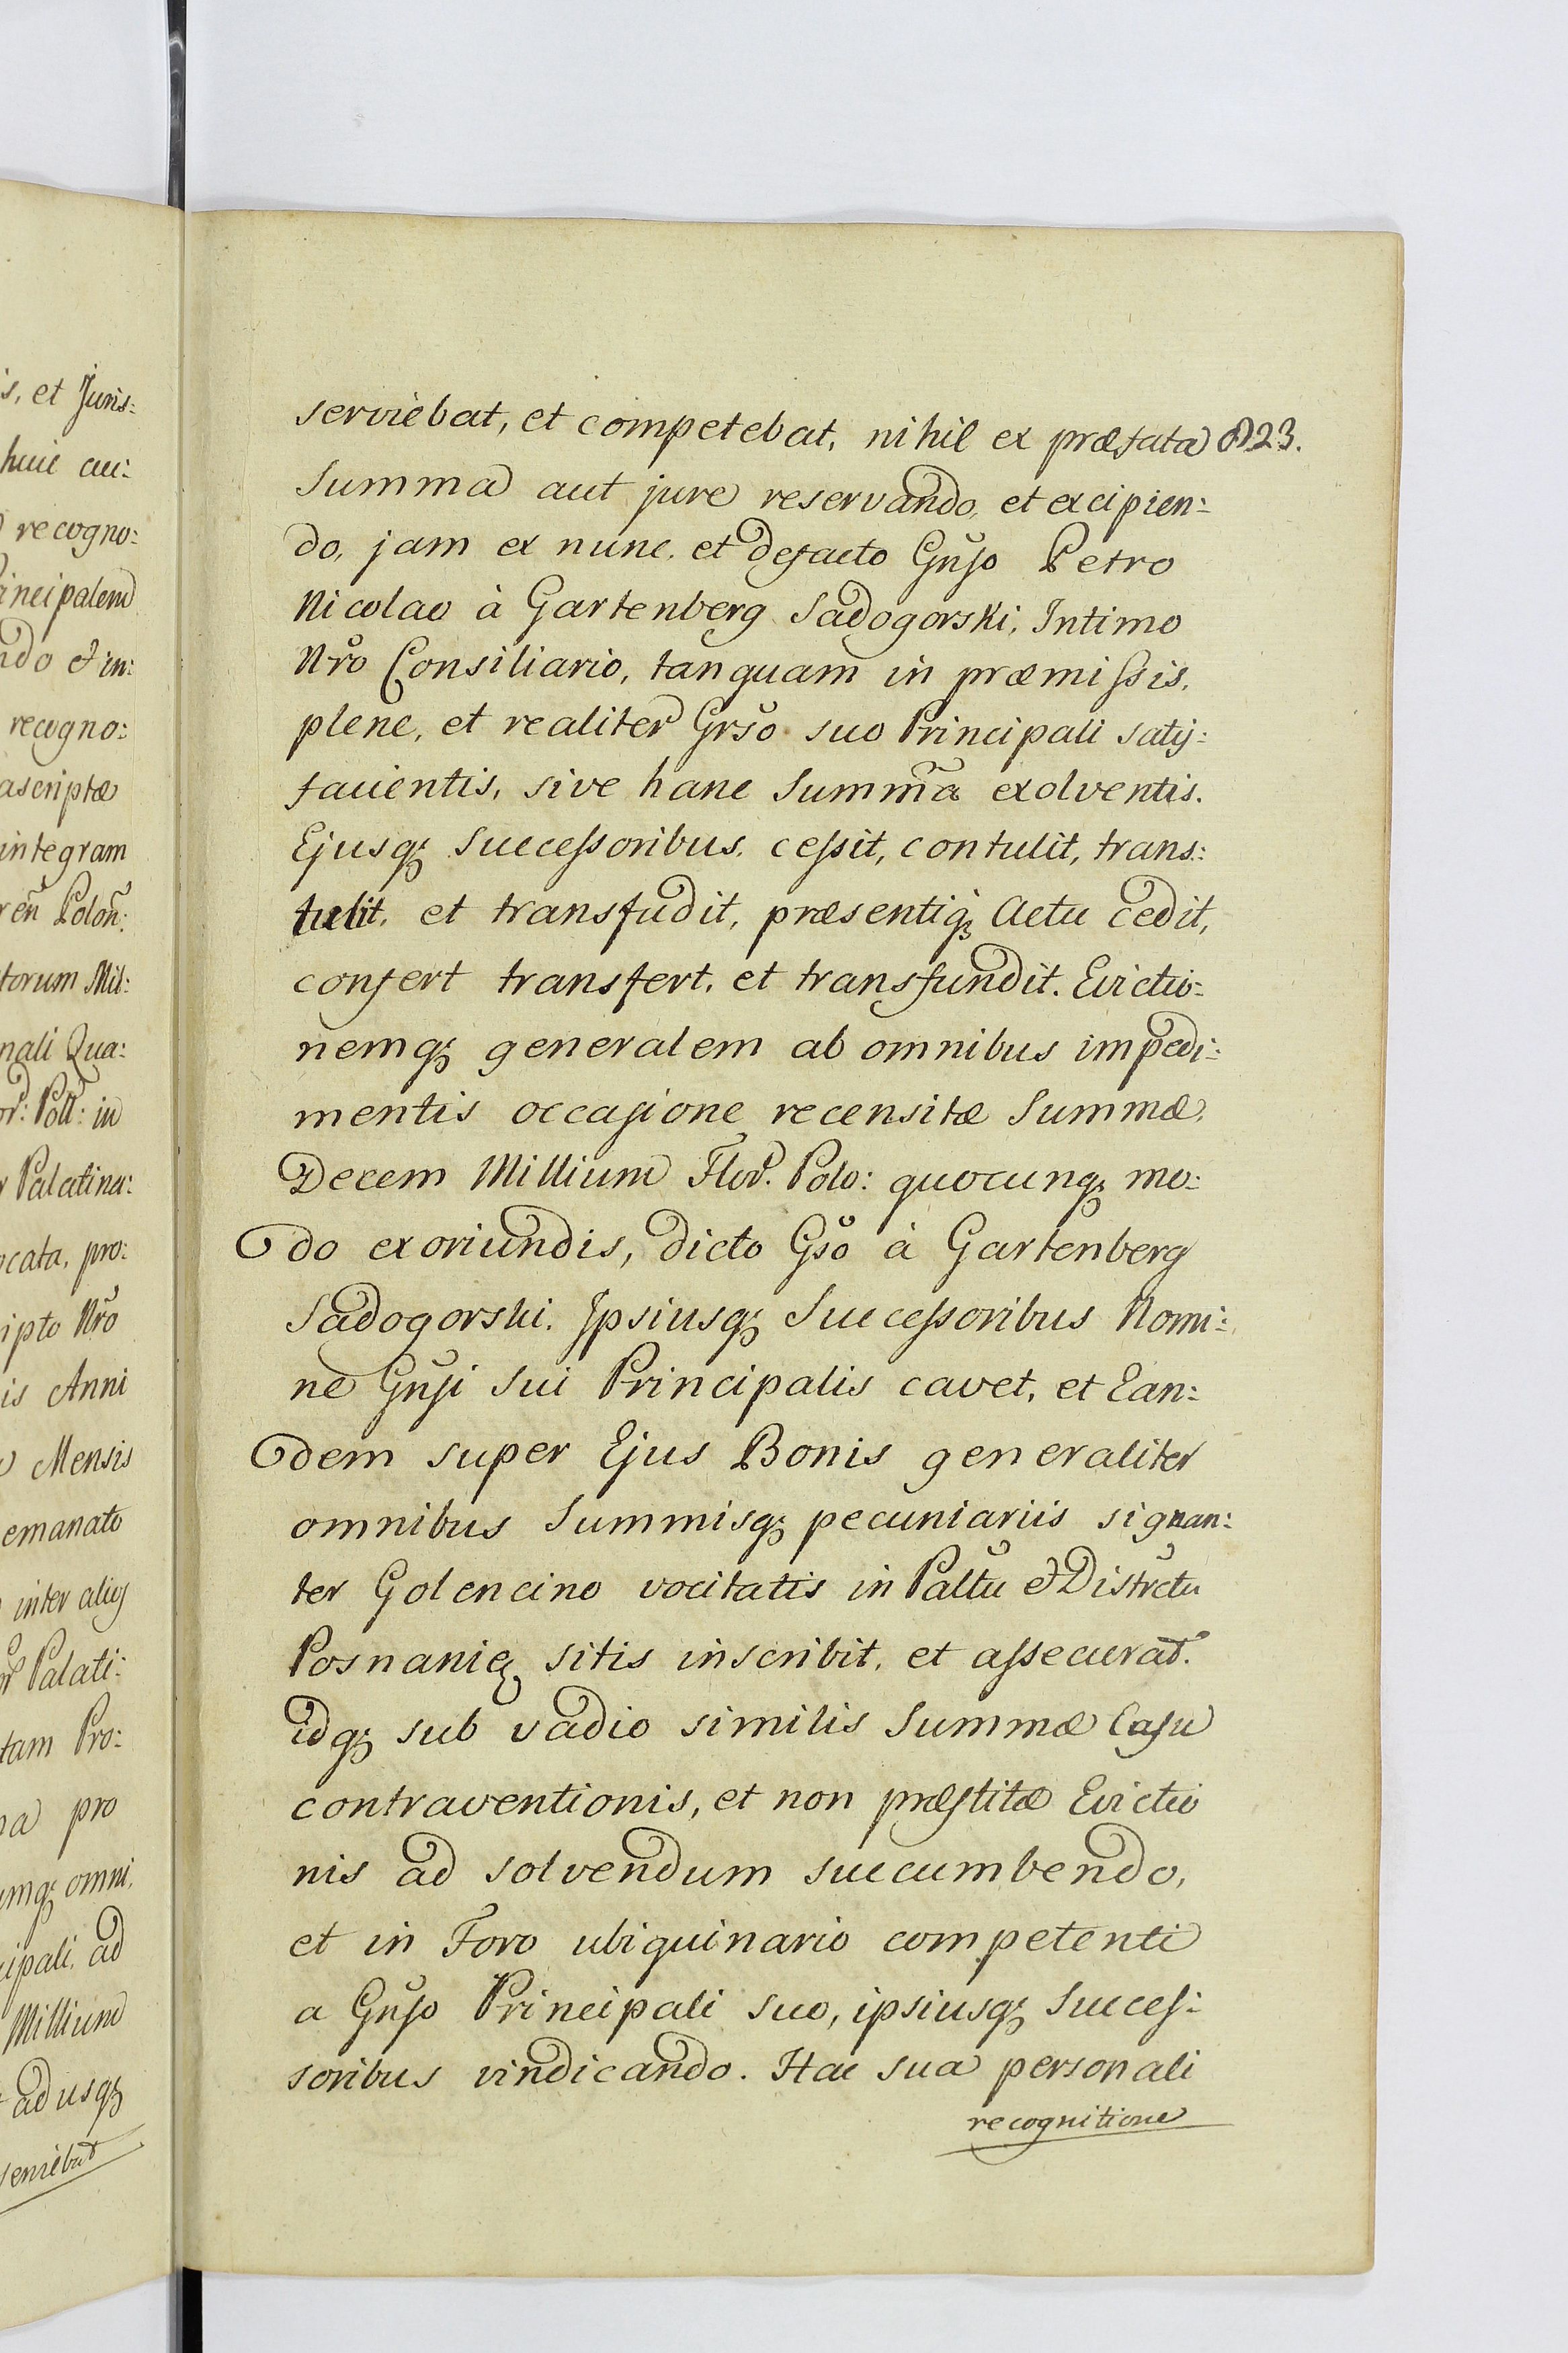 is, et Juris:
huic au:
recogno:
incipalem
ndo & in:
recogno:
ascriptæ
integram
ren̄ Polon̄:
torum Mil:
nali Qua:
or: Poll: in
Palatina:
ocata, pro:
ipto Nr̃o
is Anni
Mensis
emanato
inter alios
Palati:
tam Pro:
na pro
umqꝫ omni,
cipali, ad
Millium
ad usqꝫ
serviebat
serviebat, et competebat, nihil ex præfata 23.
Summa aut jure reservando, et excipien:
do, jam ex nunc, et defacto Gñso Petro
Nicolao à Gartenberg Sadogorski, Intimo
Nr̃o Consiliario, tanquam in præmissis,
plene, et realiter Gršo suo Principali satis:
facientis, sive hanc Summ̃a exolventis.
Ejusqꝫ Successoribus, cessit, contulit, trans:
tulit, et transfudit, præsentiqꝫ Actu cedit,
confert transfert, et transfundit. Evictio:
nemqꝫ generalem ab omnibus impedi:
mentis occasione recensitæ Summæ,
Decem Millium Flor. Polo: quocunqꝫ mo:
do exoriundis, dicto Gšo à Gartenberg
Sadogorski. Ipsiusqꝫ Successoribus Nomi:
ne Gñsi sui Principalis cavet, et Ean:
dem super Ejus Bonis generaliter
omnibus Summisqꝫ pecuniariis signan:
ter Golencino vocitatis in Paltũ & Districtu
Posnanię sitis inscribit, et assecurat.
idqꝫ sub vadio similis Summæ Casu
contraventionis, et non præstitæ Evictio
nis ad solvendum succumbendo,
et in Foro ubiquinario competenti
a Gñso Principali suo, ipsiusqꝫ Succes:
soribus vindicando. Hac sua personali
recognitione